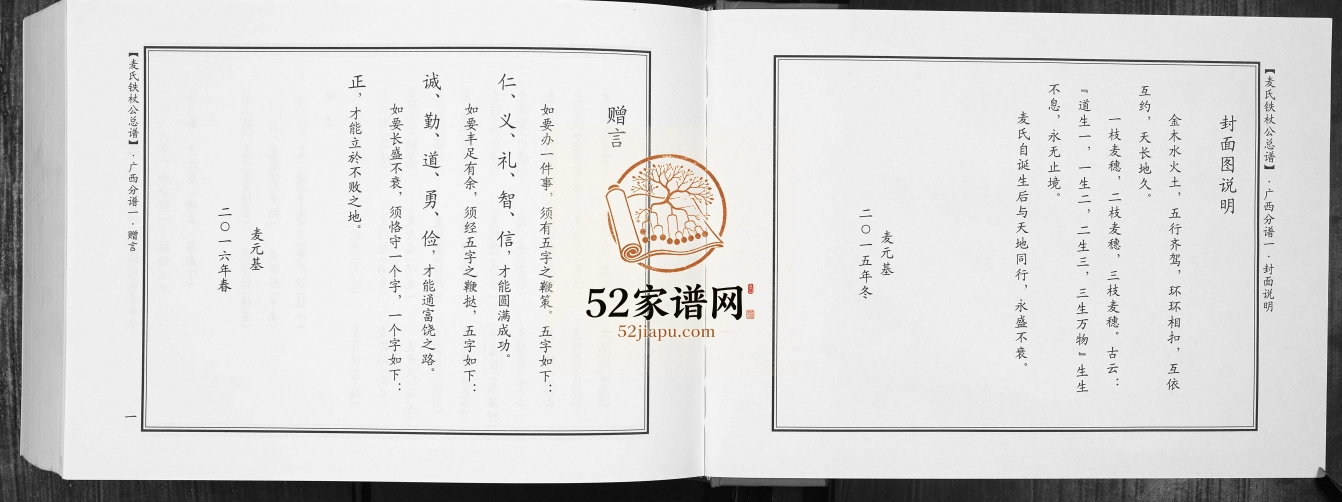 【麦氏铁杖公总谱】·广西分谱一·封面说明
封面图说明
金木水火土，五行齐驾，环环相扣，互依
互约，天长地久。
一枝麦穗，二枝麦穗，三枝麦穗。古云：
『道生一，一生二，二生三，三生万物』生生
不息，永无止境。
麦氏自诞生后与天地同行，永盛不衰。
麦元基
二〇一五年冬
赠言
如要办一件事，须有五字之鞭策。五字如下：
仁、义、礼、智、信，才能圆满成功。
如要丰足有余，须经五字之鞭挞，五字如下：
诚、勤、道、勇、俭，才能通富饶之路。
如要长盛不衰，须恪守一个字，一个字如下：
正，才能立於不败之地。
麦元基
二〇一六年春
【麦氏铁杖公总谱】·广西分谱一·赠言
一
52家谱网
52jiapu.com